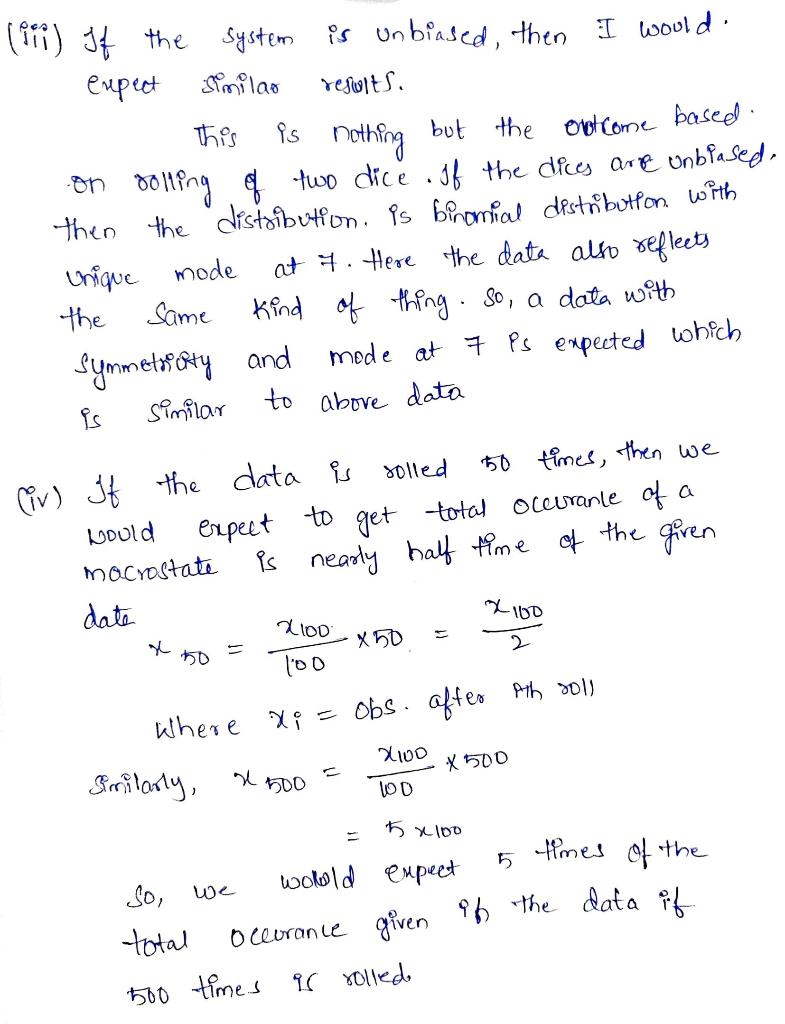 (iii) If the system is unbiased, then I would.
expect similar results.
This is nothing but the outcome based.
on rolling of two dice. If the dices are unbiased,
then the distribution. is binomial distribution with
unique mode at 7. Here the data also reflects
the same kind of thing. So, a data with
symmetricity and mode at 7 is expected which
is similar to above data
(iv) If the data is rolled 50 times, then we
would expect to get total occurance of a
macrostate is nearly half time of the given
date
x 50 = x100 / 100 × 50 = x100 / 2
Where xi = obs. after ith roll
Similarly, x 500 = x100 / 100 × 500
= 5 x100
So, we would expect 5 times of the
total occurance given in the data if
500 times is rolled